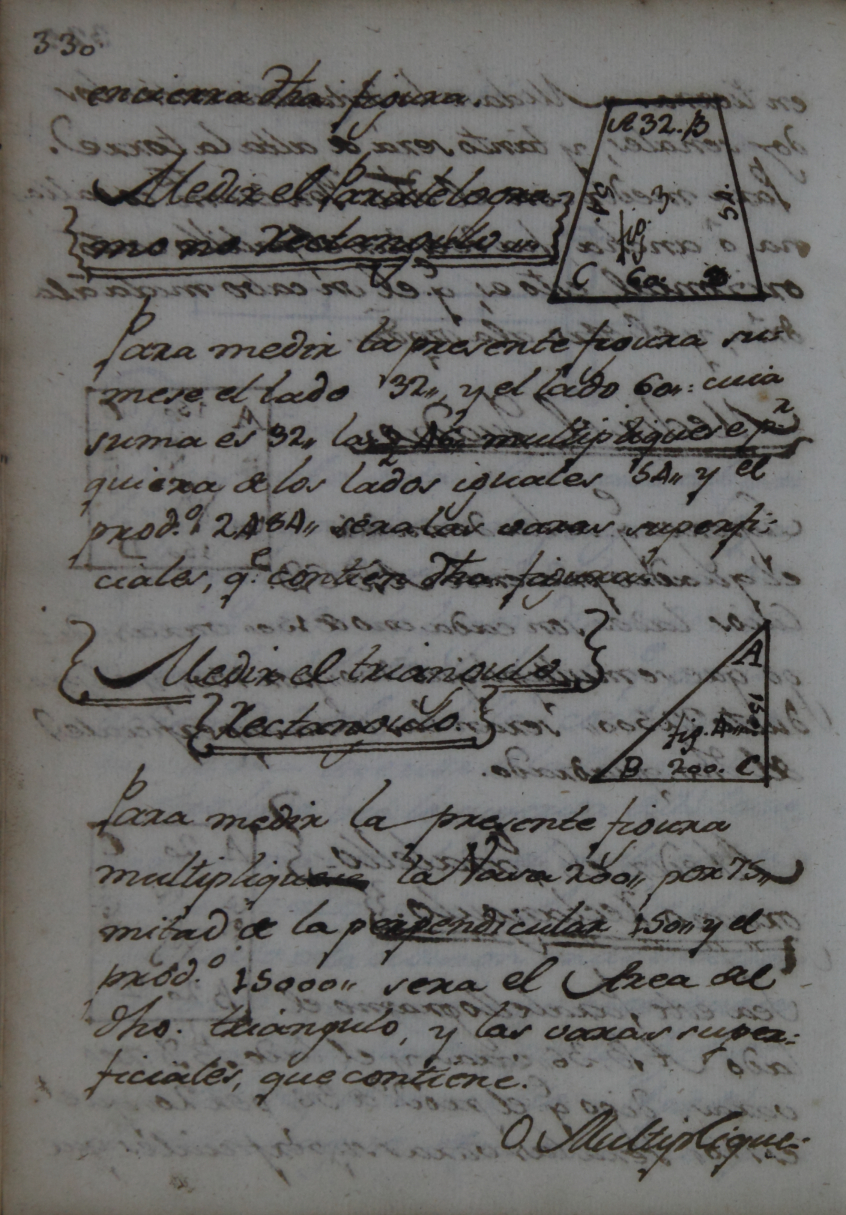 330
encierra dha figura.
A 32. B
54.
54.
fig. 3
C 60. D
Medir el Paralelogra-
mo no Rectangulo
Para medir la presente figura su-
mese el lado 32,, y el lado 60,, cuia
suma es 92,, la 1/2 46,, multipliquese pr.
quiera de los lados iguales 54,, y el
prod.o 2484,, sera las varas superfi-
ciales, q.e contien dha figura
Medir el triangulo
Rectangulo.
A
150
fig. 4
B 200. C
Para medir la presente figura
multipliquese la Vava 200,, por 75,,
mitad de la perpendicular 150,, y el
prod.o 15000,, sera el Area del
dho. triangulo, y las varas super-
ficiales, que contiene.
O Multiplique-